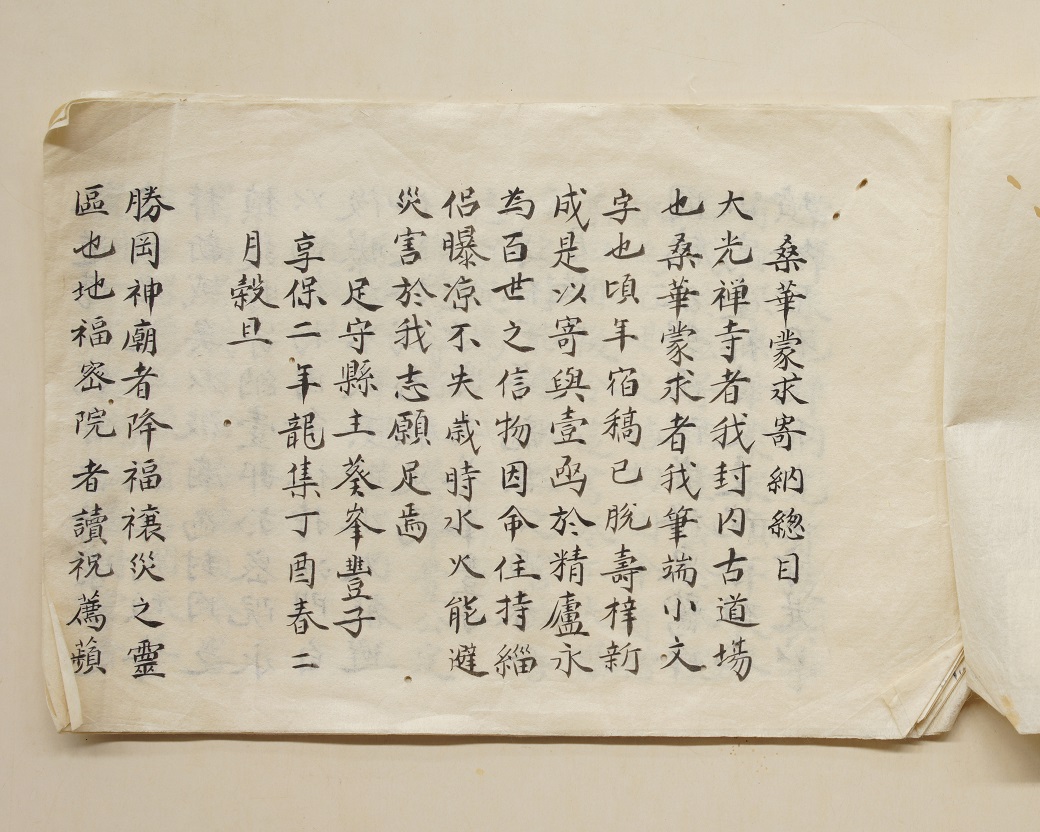 桑華蒙求寄納總目
大光禅寺者我封内古道場
也桑華蒙求者我筆端小文
字也頃年宿稿已脱壽梓新
成是以寄與壹凾於精廬永
為百世之信物因命住持緇
侶曝凉不失歳時水火能避
災害於我志願足焉
足守縣主葵峯豊子
享保二年龍集丁酉春二
月穀旦
勝岡神廟者降福禳災之靈
區也地福密院者讀祝薦蘋